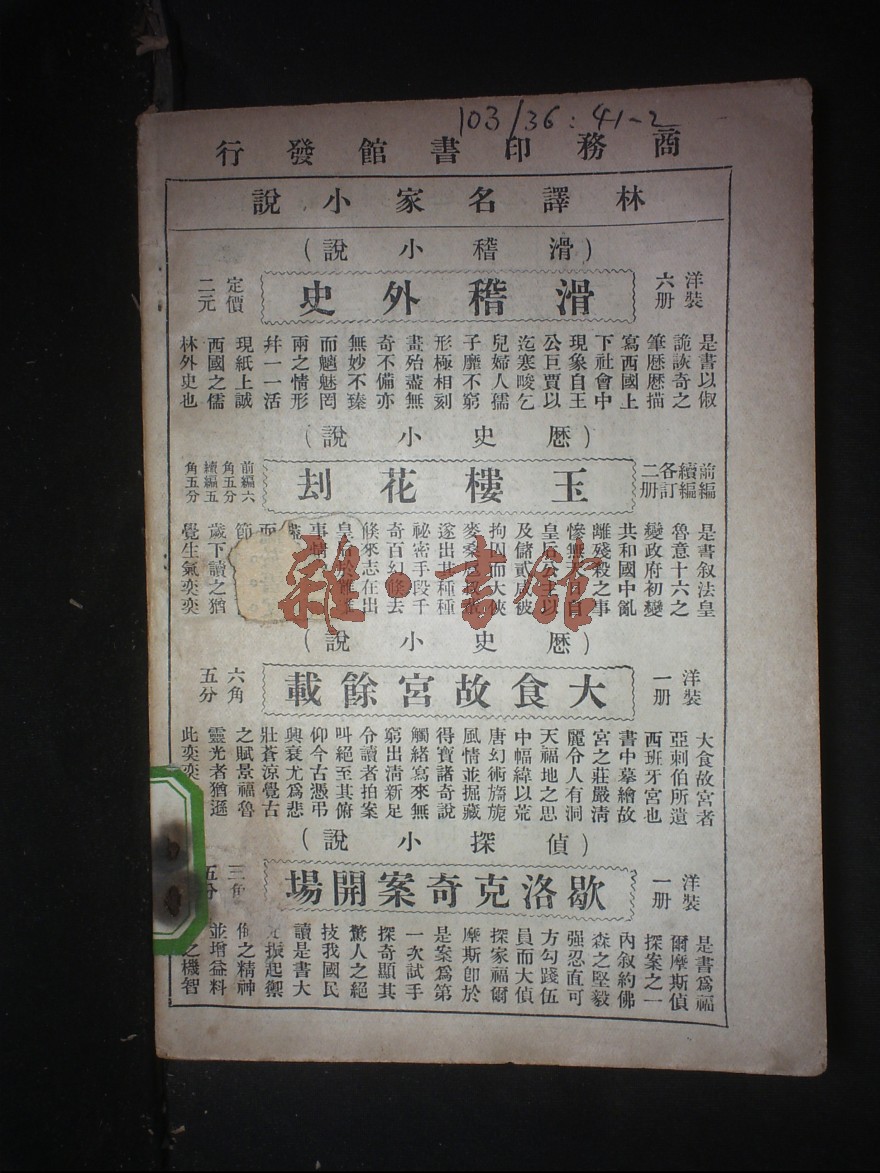 103/36:41-2
商務印書館發行
林譯名家小說
(滑稽小說)
洋裝
六册
滑稽外史
定價
二元
是書以俶
詭詼奇之
筆歷歷描
寫西國上
下社會中
現象自王
公巨賈以
迄寒唆乞
兒婦人孺
子靡不窮
形極相刻
畫殆盡無
奇不備亦
無妙不臻
而魑魅罔
兩之情形
幷一一活
現紙上誠
西國之儒
林外史也
(歷史小說)
前編
續編
各訂
二册
玉樓花刦
前編六
角五分
續編五
角五分
是書叙法皇
魯意十六之
變政府初變
共和國中亂
離殘殺之事
慘無天日自
皇后公主以
及儲貳咸被
拘囚而大俠
遂出其種種
祕密手段千
奇百幻倐去
倐來志在出
皇后於
事情
節
歲下讀之猶
覺生氣奕奕
雜·書館
(歷史小說)
洋裝
一册
大食故宮餘載
六角
五分
大食故宮者
亞剌伯所遺
西班牙宮也
書中摹繪故
宮之莊嚴淸
麗令人有洞
天福地之思
中幅緯以荒
唐幻術旖旎
風情並掘藏
得寶諸奇說
觸緒寫來無
窮出淸新足
令讀者拍案
叫絕至其俯
仰今古憑弔
興衰尤爲悲
壯蒼涼覺古
之賦景福魯
靈光者猶遜
此奕奕
(偵探小說)
洋裝
一册
歇洛克奇案開場
三角
五分
是書爲福
爾摩斯偵
探案之一
內叙約佛
森之堅毅
强忍直可
方勾踐伍
員而大偵
探家福爾
摩斯卽於
是案爲第
一次試手
探奇顯其
驚人之絕
技我國民
讀是書大
振起禦
侮之精神
並增益料
之機智